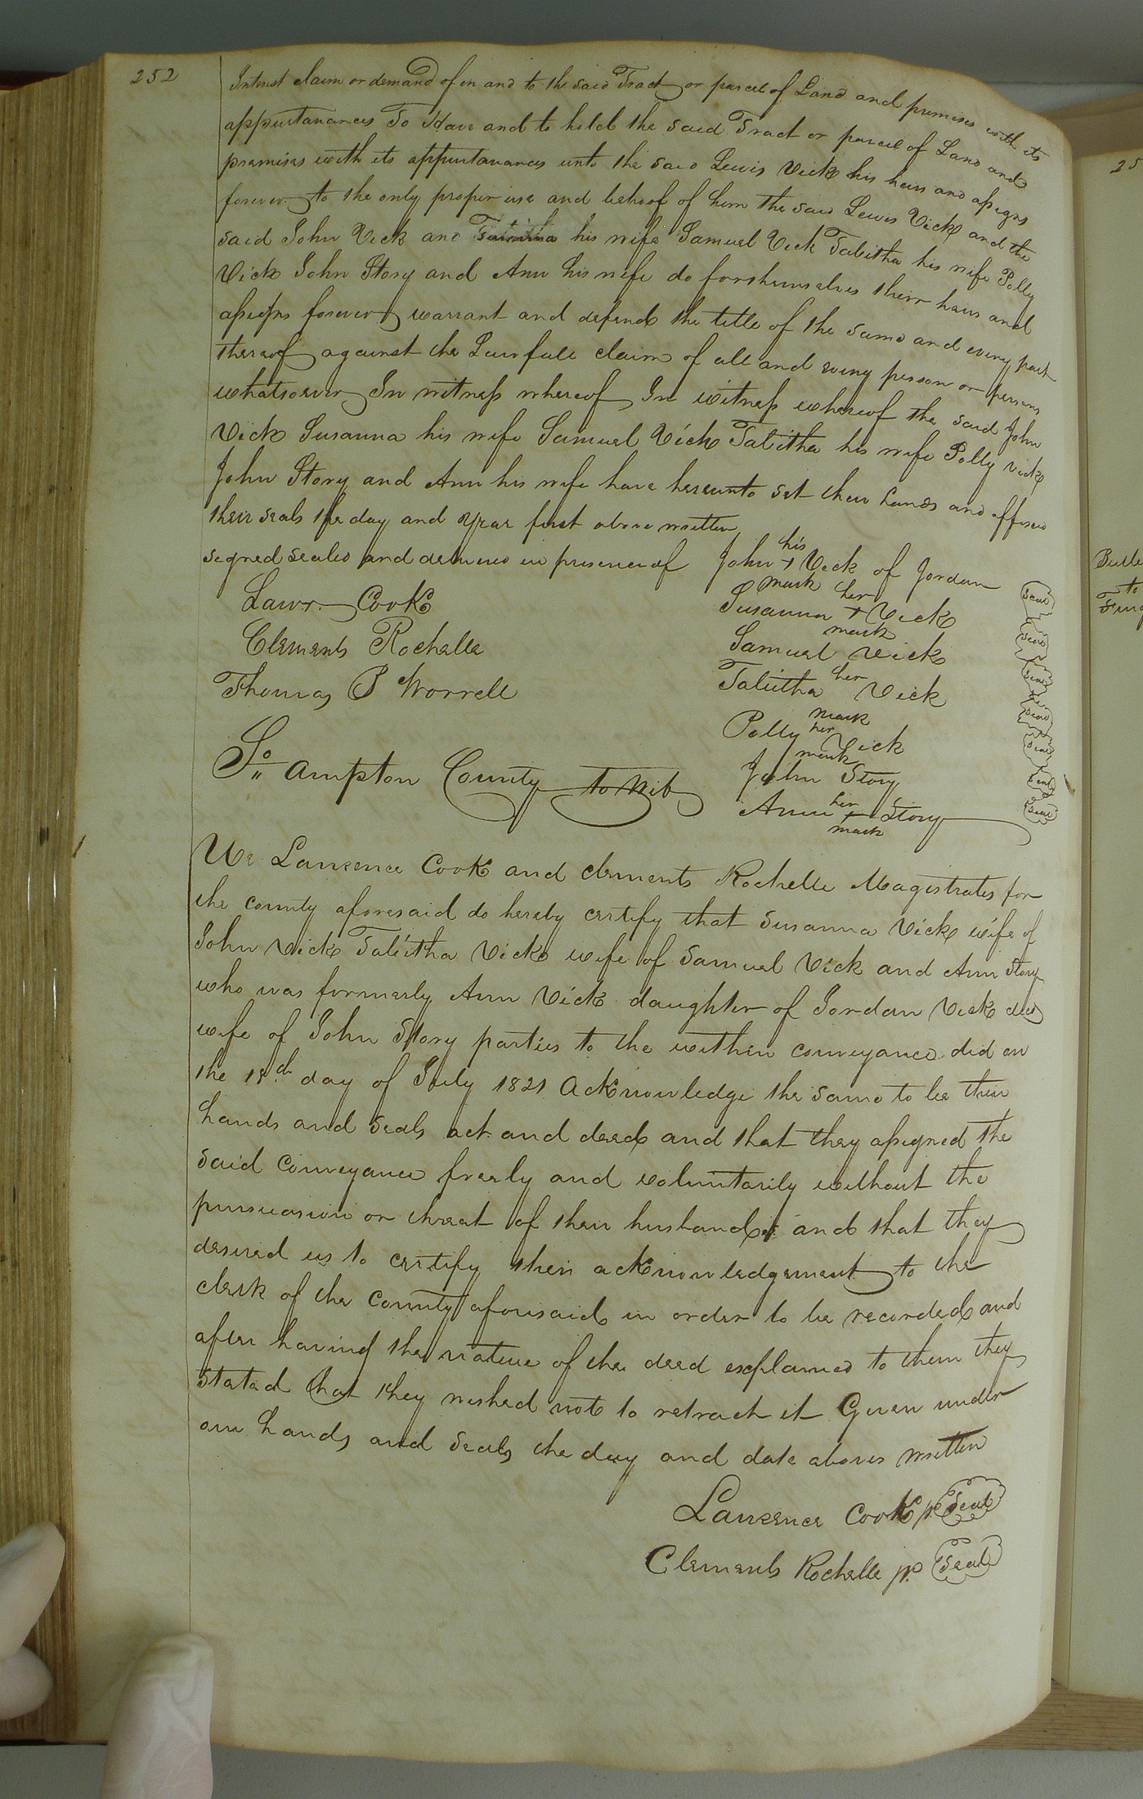 252
Interest claim or demand of in and to the said Tract or parcel of Land and premises with its
appurtanances To Have and to hold the said Tract or parcel of Land and
premises with its appurtanances unto the said Lewis Vick his heirs and assigns
forever to the only proper use and behoof of him the said Lewis Vick and the
said John Vick and his wife Samuel Vick Tabitha his wife Polly
Vick John Story and Ann his wife do for themselves their heirs and
assigns forever warrant and defend the title of the same and every part
thereof against the Lawfull claim of all and every person or persons
whatsoever In witness whereof In witness whereof the said John
Vick Susanna his wife Samuel Vick Tabitha his wife Polly Vick
John Story and Ann his wife have hereunto set their hands and affixed
their seals the day and year first above written
signed sealed and delivered in presence of John his + mark Vick of Jordan seal
Lawr. Cook
Susanna her + mark Vick seal
Clements Rochelle
Samuel Vick seal
Thomas P Worrell
Tabitha her mark Vick seal
Polly her mark Vick seal
John Story seal
Ann her mark Story seal
So ampton County to wit
We Lawrence Cook and Clements Rochelle Magistrates for
the county aforesaid do hereby certify that Susanna Vick wife of
John Vick Tabitha Vick wife of Samuel Vick and Ann Story
who was formerly Ann Vick daughter of Jordan Vick decd
wife of John Story parties to the within conveyance did on
the 18th day of July 1821 acknowledge the same to be their
hands and seals act and deed and that they assigned the
said conveyance freely and voluntarily without the
pursuasion or threat of their husbands and that they
desired us to certify their acknowledgement to the
clerk of the county aforesaid in order to be recorded and
after having the nature of the deed explained to them they
stated that they wished not to retract it Given under
our hands and seals the day and date above written
Lawrence Cook jp seal
Clements Rochelle jp. seal
25
to